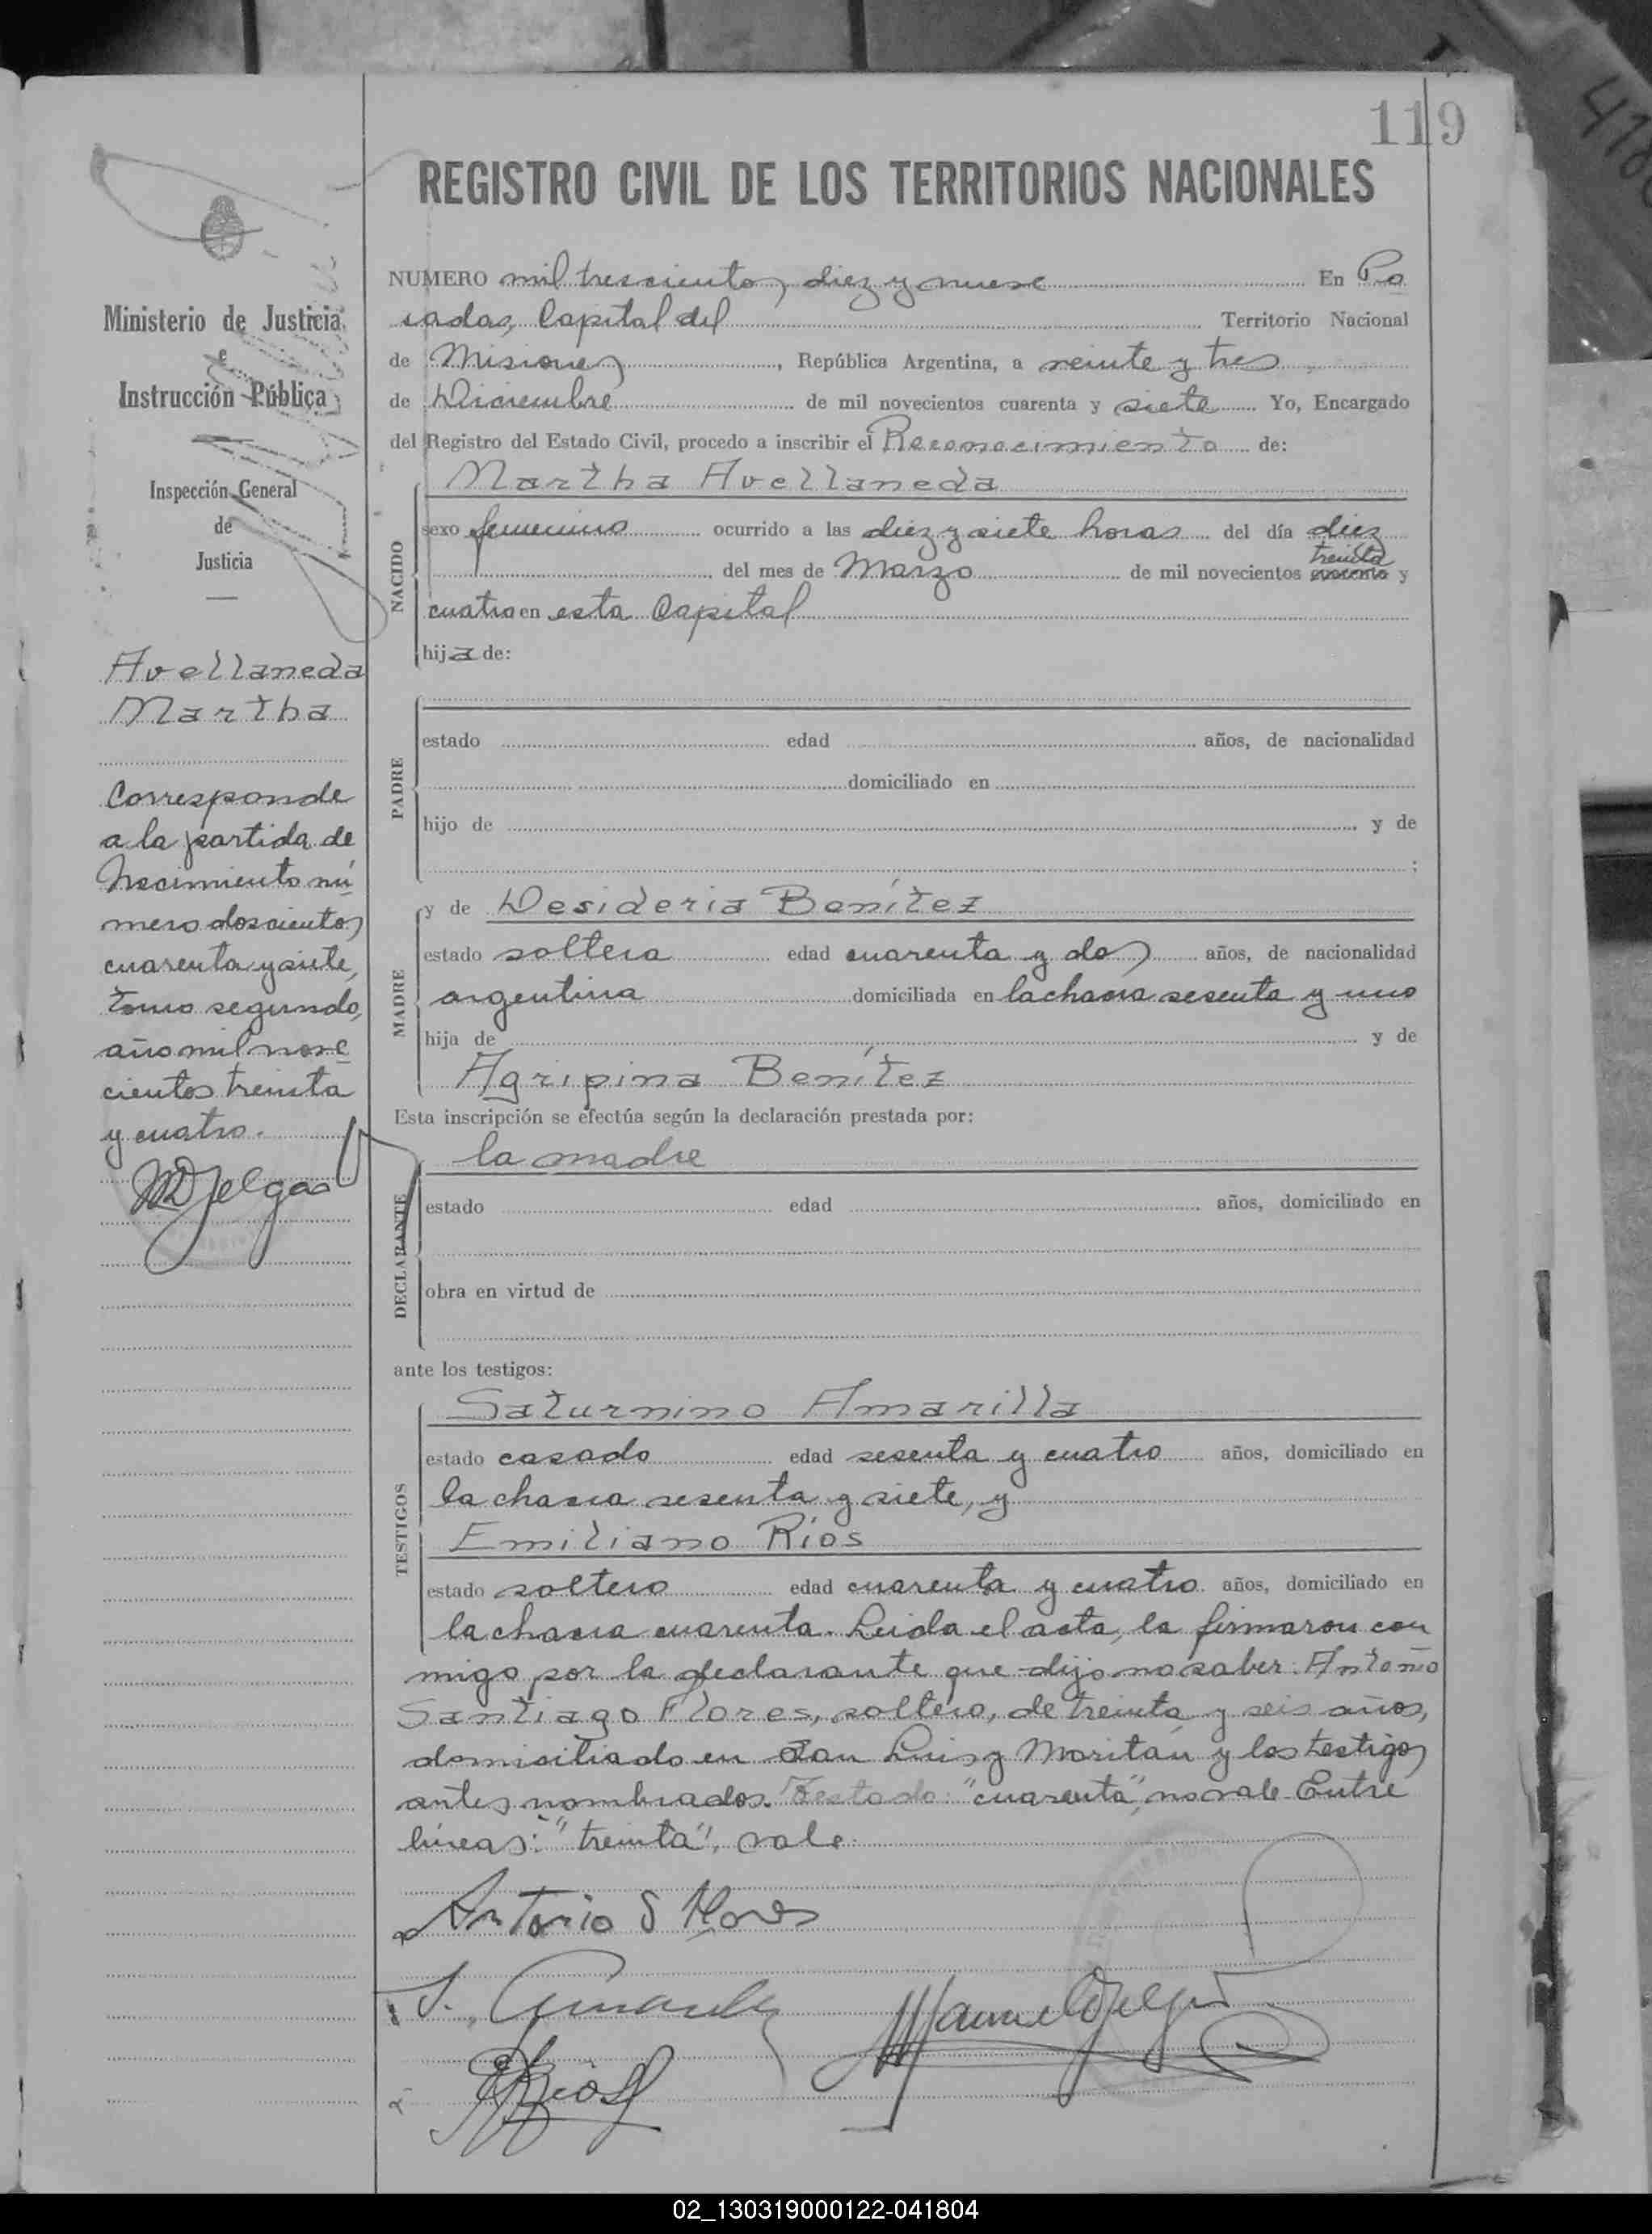 119
REGISTRO CIVIL DE LOS TERRITORIOS NACIONALES
Ministerio de Justicia
e
Instrucción Pública
Inspección General
de
Justicia
Avellaneda
Martha
Corresponde
a la partida de
Nacimiento nú
mero doscientos
cuarenta y siete,
tomo segundo,
año mil nove
cientos treinta
y cuatro.
NUMERO mil trescientos diez y nueve En Po
sadas, Capital del Territorio Nacional
de Misiones, República Argentina, a veinte y tres
de Diciembre de mil novecientos cuarenta y siete Yo, Encargado
del Registro del Estado Civil, procedo a inscribir el Reconocimiento de:
NACIDO
Martha Avellaneda
sexo femenino ocurrido a las diez y siete horas del día diez
treinta
del mes de Marzo de mil novecientos cuarenta y
cuatro en esta Capital
hija de:
PADRE
estado edad años, de nacionalidad
domiciliado en
hijo de y de
;
MADRE
y de Desideria Benítez
estado soltera edad cuarenta y dos años, de nacionalidad
argentina domiciliada en la chacra sesenta y uno
hija de y de
Agripina Benítez
Esta inscripción se efectúa según la declaración prestada por:
DECLARANTE
la madre
estado edad años, domiciliado en
obra en virtud de
ante los testigos:
TESTIGOS
Saturnino Amarilla
estado casado edad sesenta y cuatro años, domiciliado en
la chacra sesenta y siete, y
Emiliano Ríos
estado soltero edad cuarenta y cuatro años, domiciliado en
la chacra cuarenta. Leída el acta, la firmaron con
migo, por la declarante que dijo no saber: Antonio
Santiago Flores, soltero, de treinta y seis años,
domiciliado en San Luis y Moritán y los testigos
antes nombrados. Testado: "cuarenta", no vale. Entre
líneas: "treinta", vale.
Antonio S Flores
02_130319000122-041804